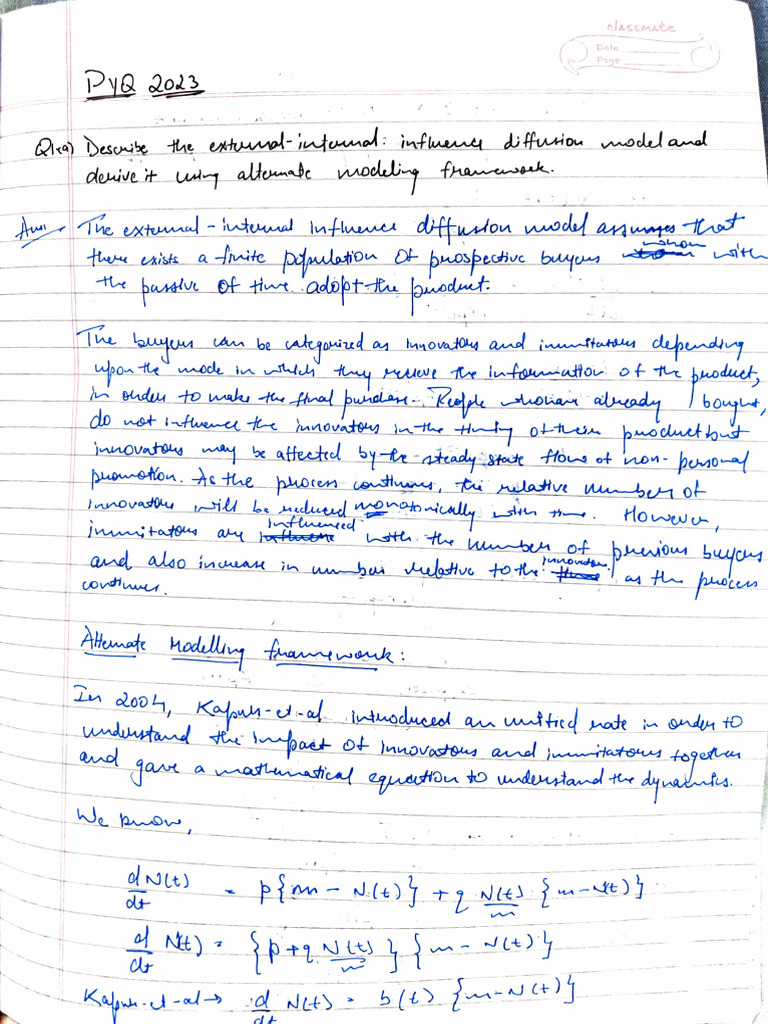 classmate
Date
Page
PYQ 2023
Q1.(a) Describe the external-internal: influence diffusion model and
derive it using alternate modeling framework.
Ans The external-internal Influence diffusion model assumes that
there exists a finite population of prospective buyers whom with
the passive of time adopt the product.
The buyers can be categorized as innovators and immitators depending
upon the mode in which they recieve the information of the product,
in order to make the final purchase. People who have already bought,
do not influence the innovators in the timing of their product but
innovators may be affected by the steady state flows of non-personal
promotion. As the process continues, the relative numbers of
innovators will be reduced monotonically with time. However,
immitators are influenced with the numbers of previous buyers
and also increase in number relative to the innovators as the process
continues.
Alternate Modelling framework:
In 2004, Kapur-et-al introduced an unified rate in order to
understand the impact of innovators and immitators together
and gave a mathematical equation to understand the dynamics.
We know,
d N(t)/dt = p{m - N(t)} + q N(t)/m {m - N(t)}
d/dt N(t) = {p + q N(t)/m} {m - N(t)}
Kapur-et-al → d/dt N(t) = b(t) {m - N(t)}